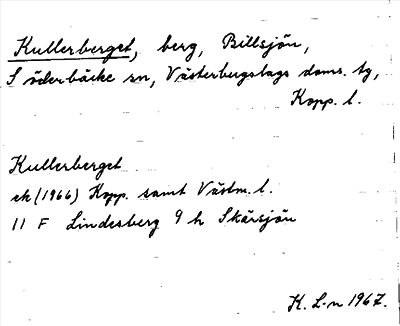 Kullerberget, berg, Billsjön,
Söderbäcke sn, Västerbergslags doms. tg,
Kopp. l.
Kullerberget
ek (1966) Kopp. samt Västm. l.
11 F Lindesberg 9 h Skärsjön
K. L-n 1967.